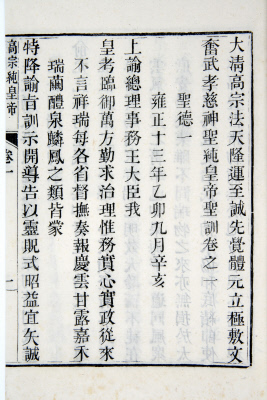 大清高宗法天隆運至誠先覺體元立極敷文
奮武孝慈神聖純皇帝聖訓卷之一
聖德一
雍正十三年乙卯九月辛亥
上諭總理事務王大臣我
皇考臨御萬方勤求治理惟務實心實政從來
不言祥瑞每各省督撫奏報慶雲甘露嘉禾
瑞繭醴泉麟鳳之類皆蒙
特降諭旨訓示開導告以靈貺式昭益宜矢誠
高宗純皇帝
卷一
一